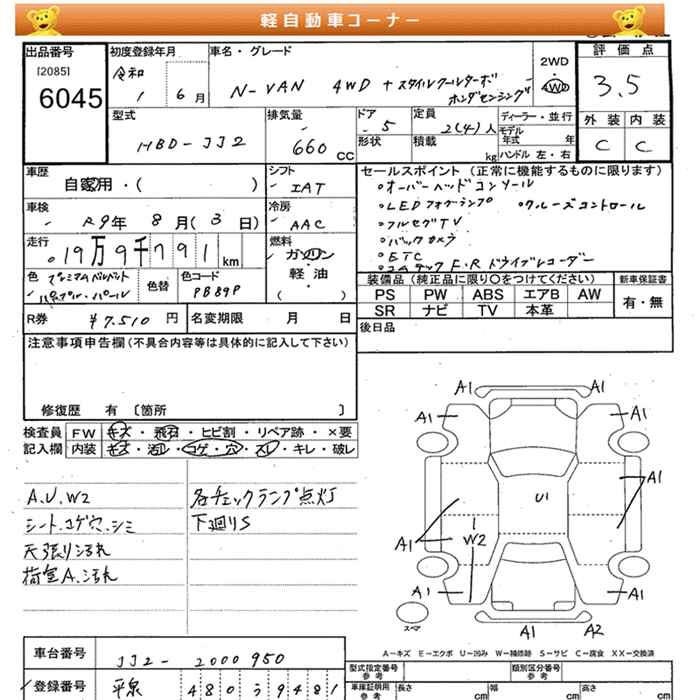 軽自動車コーナー
出品番号 初度登録年月 車名・グレード 評価点
[2085] 令和 2WD
6045 1 6月 N-VAN 4WD +スタイルクールターボ 4WD 3.5
ホンダセンシング
型式 排気量 ドア 定員 ディーラー・並行 外装 内装
HBD-JJ2 660 CC 5 2(4)人 モデル年式 年 C C
形状 積載 kg ハンドル 左・右
車歴 シフト セールスポイント (正常に機能するものに限ります)
自家用・( ) IAT ・オーバーヘッドコンソール
車検 冷房 ・LEDフォグランプ ・クルーズコントロール
R9年 8月(3日) AAC ・フルセグTV
走行 燃料 ・バックカメラ
19万9千791km ガソリン ・ETC
軽油 ・コムテックF.Rドライブレコーダー
色 色替 色コード ( ) 装備品 (純正品に限り○をつけてください) 新車保証書
プレミアムベルベット PB89P PS PW ABS エアB AW 有・無
パープル・パール SR ナビ TV 本革
R券 ¥7.510円 名変期限 月 日 後日品
注意事項申告欄(不具合内容等は具体的に記入して下さい)
修復歴 有 〔箇所 〕
検査員 FW キズ・飛石・ヒビ割・リペア跡・×要
記入欄 内装 キズ・汚レ・コゲ・穴・スレ・キレ・破レ
A.U.W2 各チェックランプ点灯
シート.コゲ穴.シミ 下廻りS
天張り汚れ
荷室A.汚れ
A1 A1
A1 A1
A1
U1
W2
A1
A1 A1
A1 A2
スペア
A-キズ E-エクボ U-凹み W-補修跡 S-サビ C-腐食 XX-交換済
車台番号 JJ2-2000950 型式指定番号 参考 類別区分番号 参考
登録番号 4809481 車庫証明用 参考 長さ cm 幅 cm 高さ cm